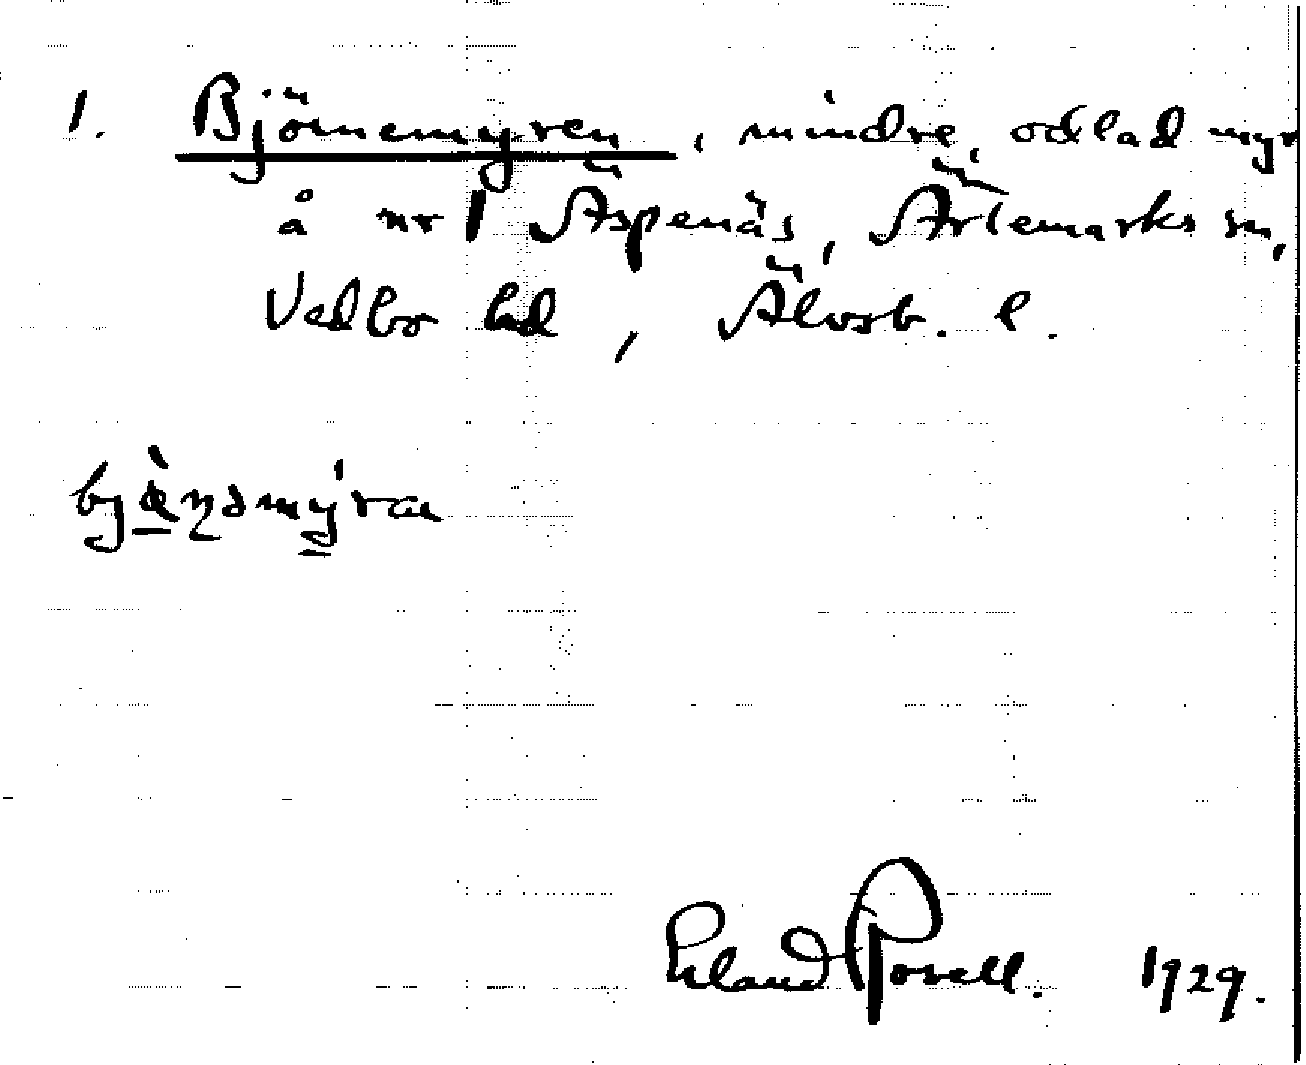 1. Björnemyren, mindre, odlad myr
å nr 1 Äspenäs, Ärtemarks sn,
Vedbo hd, Älvsb. l.
Erland Rosell. 1929.